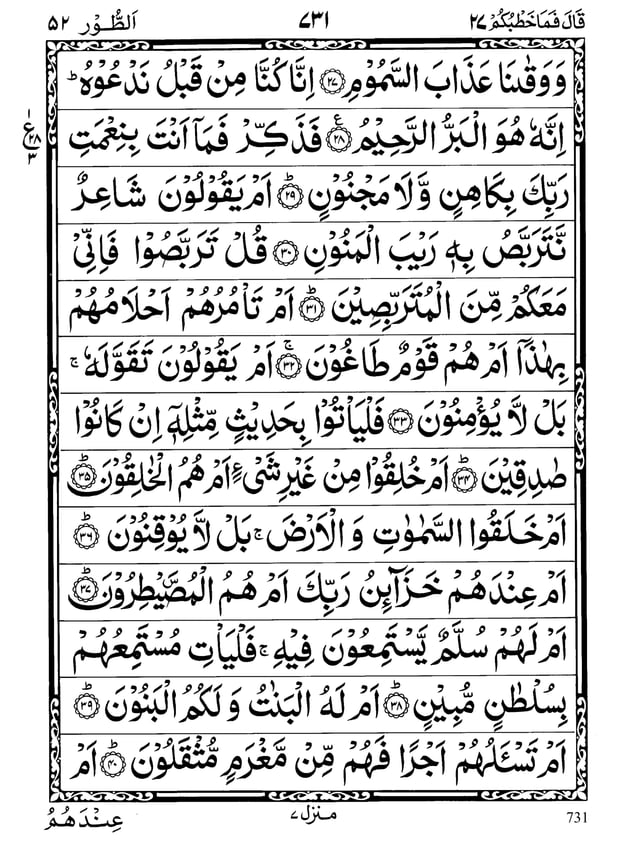 قَالَ فَمَا خَطْبُكُمْ ٢٧ ٧٣١ اَلطُّوْر ٥٢
وَوَقٰىنَا عَذَابَ السَّمُوْمِ ﴿۲۷﴾ اِنَّا كُنَّا مِنْ قَبْلُ نَدْعُوْهُ ؕ
اِنَّهٗ هُوَ الْبَرُّ الرَّحِيْمُ ﴿۲۸﴾ ع فَذَكِّرْ فَمَاۤ اَنْتَ بِنِعْمَتِ
١ ع ٢٨ ٣
رَبِّكَ بِكَاهِنٍ وَّلَا مَجْنُوْنٍ ؕ﴿۲۹﴾ اَمْ يَقُوْلُوْنَ شَاعِرٌ
نَّتَرَبَّصُ بِهٖ رَيْبَ الْمَنُوْنِ ﴿۳۰﴾ قُلْ تَرَبَّصُوْا فَاِنِّيْ
مَعَكُمْ مِّنَ الْمُتَرَبِّصِيْنَ ؕ﴿۳۱﴾ اَمْ تَاْمُرُهُمْ اَحْلَامُهُمْ
بِهٰذَاۤ اَمْ هُمْ قَوْمٌ طَاغُوْنَ ۚ﴿۳۲﴾ اَمْ يَقُوْلُوْنَ تَقَوَّلَهٗ ۚ
بَلْ لَّا يُؤْمِنُوْنَ ۚ﴿۳۳﴾ فَلْيَاْتُوْا بِحَدِيْثٍ مِّثْلِهٖۤ اِنْ كَانُوْا
صٰدِقِيْنَ ؕ﴿۳۴﴾ اَمْ خُلِقُوْا مِنْ غَيْرِ شَيْءٍ اَمْ هُمُ الْخٰلِقُوْنَ ؕ﴿۳۵﴾
اَمْ خَلَقُوا السَّمٰوٰتِ وَالْاَرْضَ ۚ بَلْ لَّا يُوْقِنُوْنَ ؕ﴿۳۶﴾
اَمْ عِنْدَهُمْ خَزَآئِنُ رَبِّكَ اَمْ هُمُ الْمُصَۜيْطِرُوْنَ ؕ﴿۳۷﴾
اَمْ لَهُمْ سُلَّمٌ يَّسْتَمِعُوْنَ فِيْهِ ۚ فَلْيَاْتِ مُسْتَمِعُهُمْ
بِسُلْطٰنٍ مُّبِيْنٍ ؕ﴿۳۸﴾ اَمْ لَهُ الْبَنٰتُ وَلَكُمُ الْبَنُوْنَ ؕ﴿۳۹﴾
اَمْ تَسْـَٔلُهُمْ اَجْرًا فَهُمْ مِّنْ مَّغْرَمٍ مُّثْقَلُوْنَ ؕ﴿۴۰﴾ اَمْ
عِنْدَهُمُ منزل ٧ 731